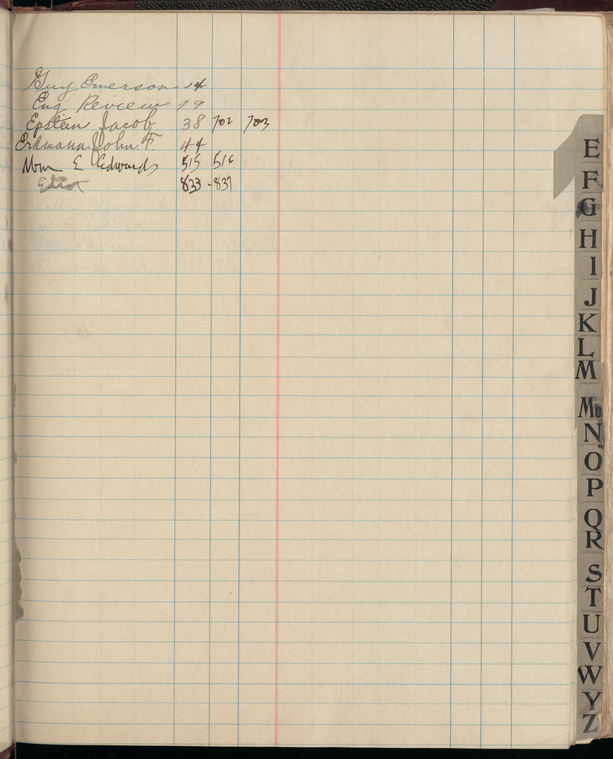 Guy Emerson 14
Eng Review 19
Epstein Jacob 38 702 703
Erdmann John F. 44
Wm E Edwards 515 516
Eliot 833-837
E
F
G
H
I
J
K
L
M
Mc
N
O
P
Q
R
S
T
U
V
W
Y
Z